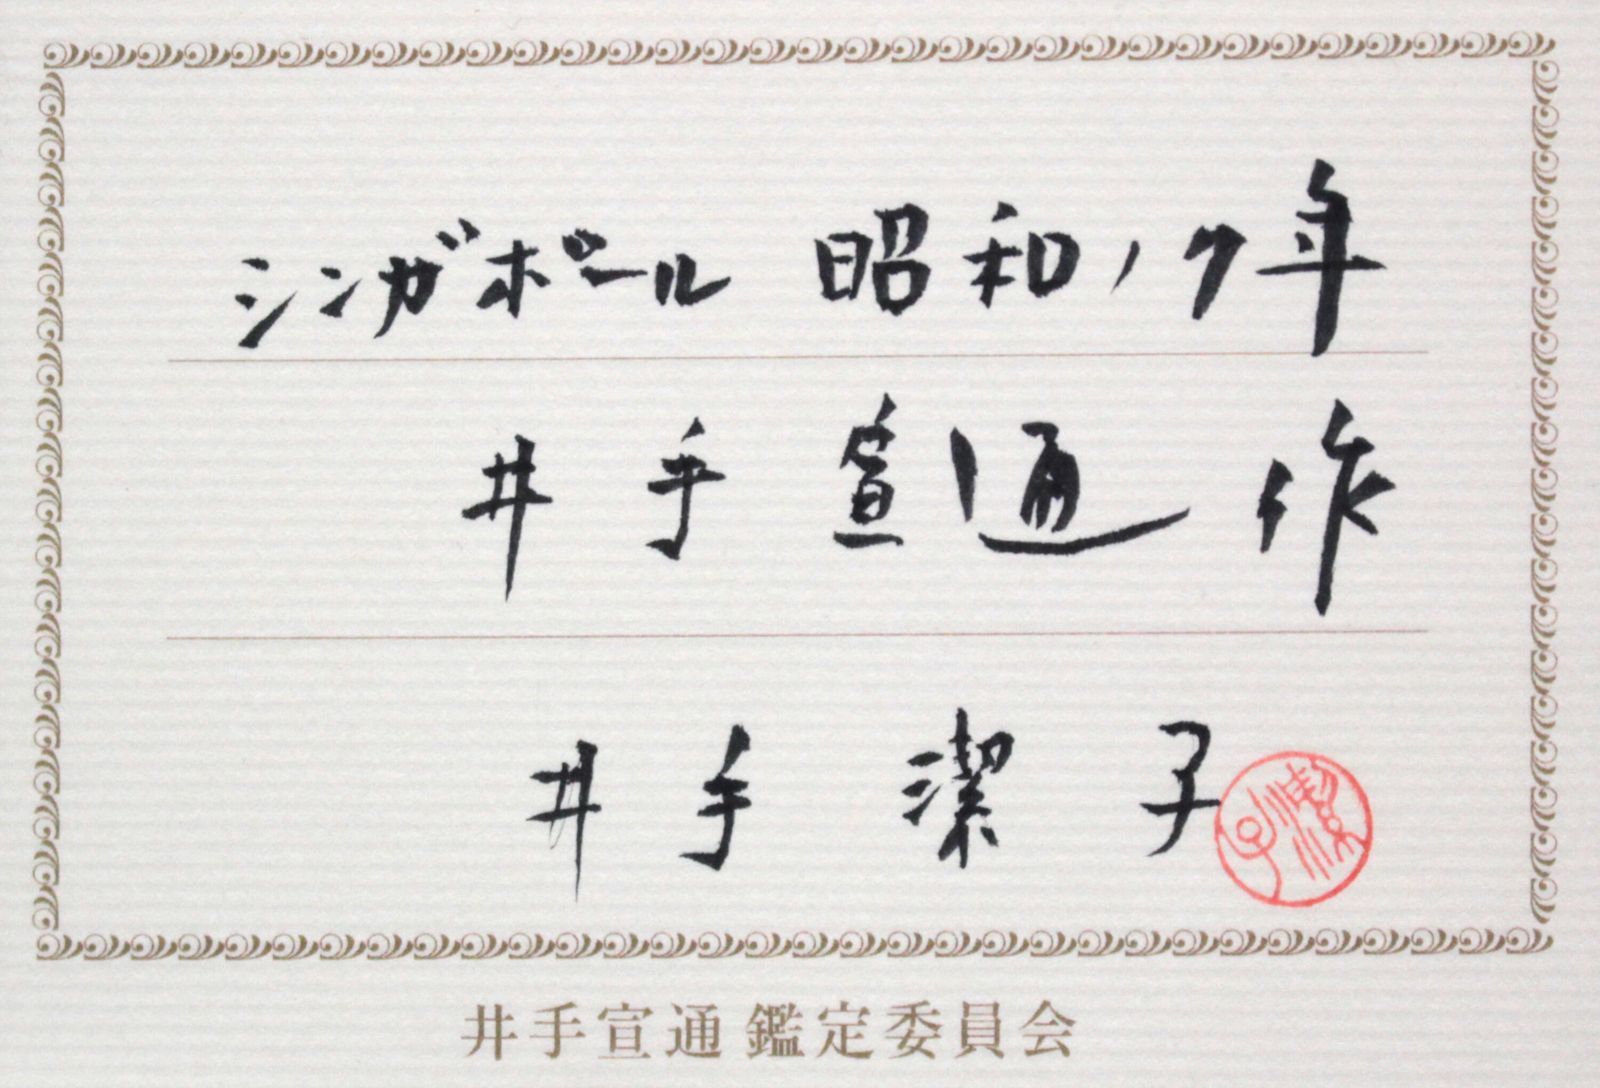 シンガポール 昭和17年
井手宣通作
井手潔子
潔子
井手宣通 鑑定委員会